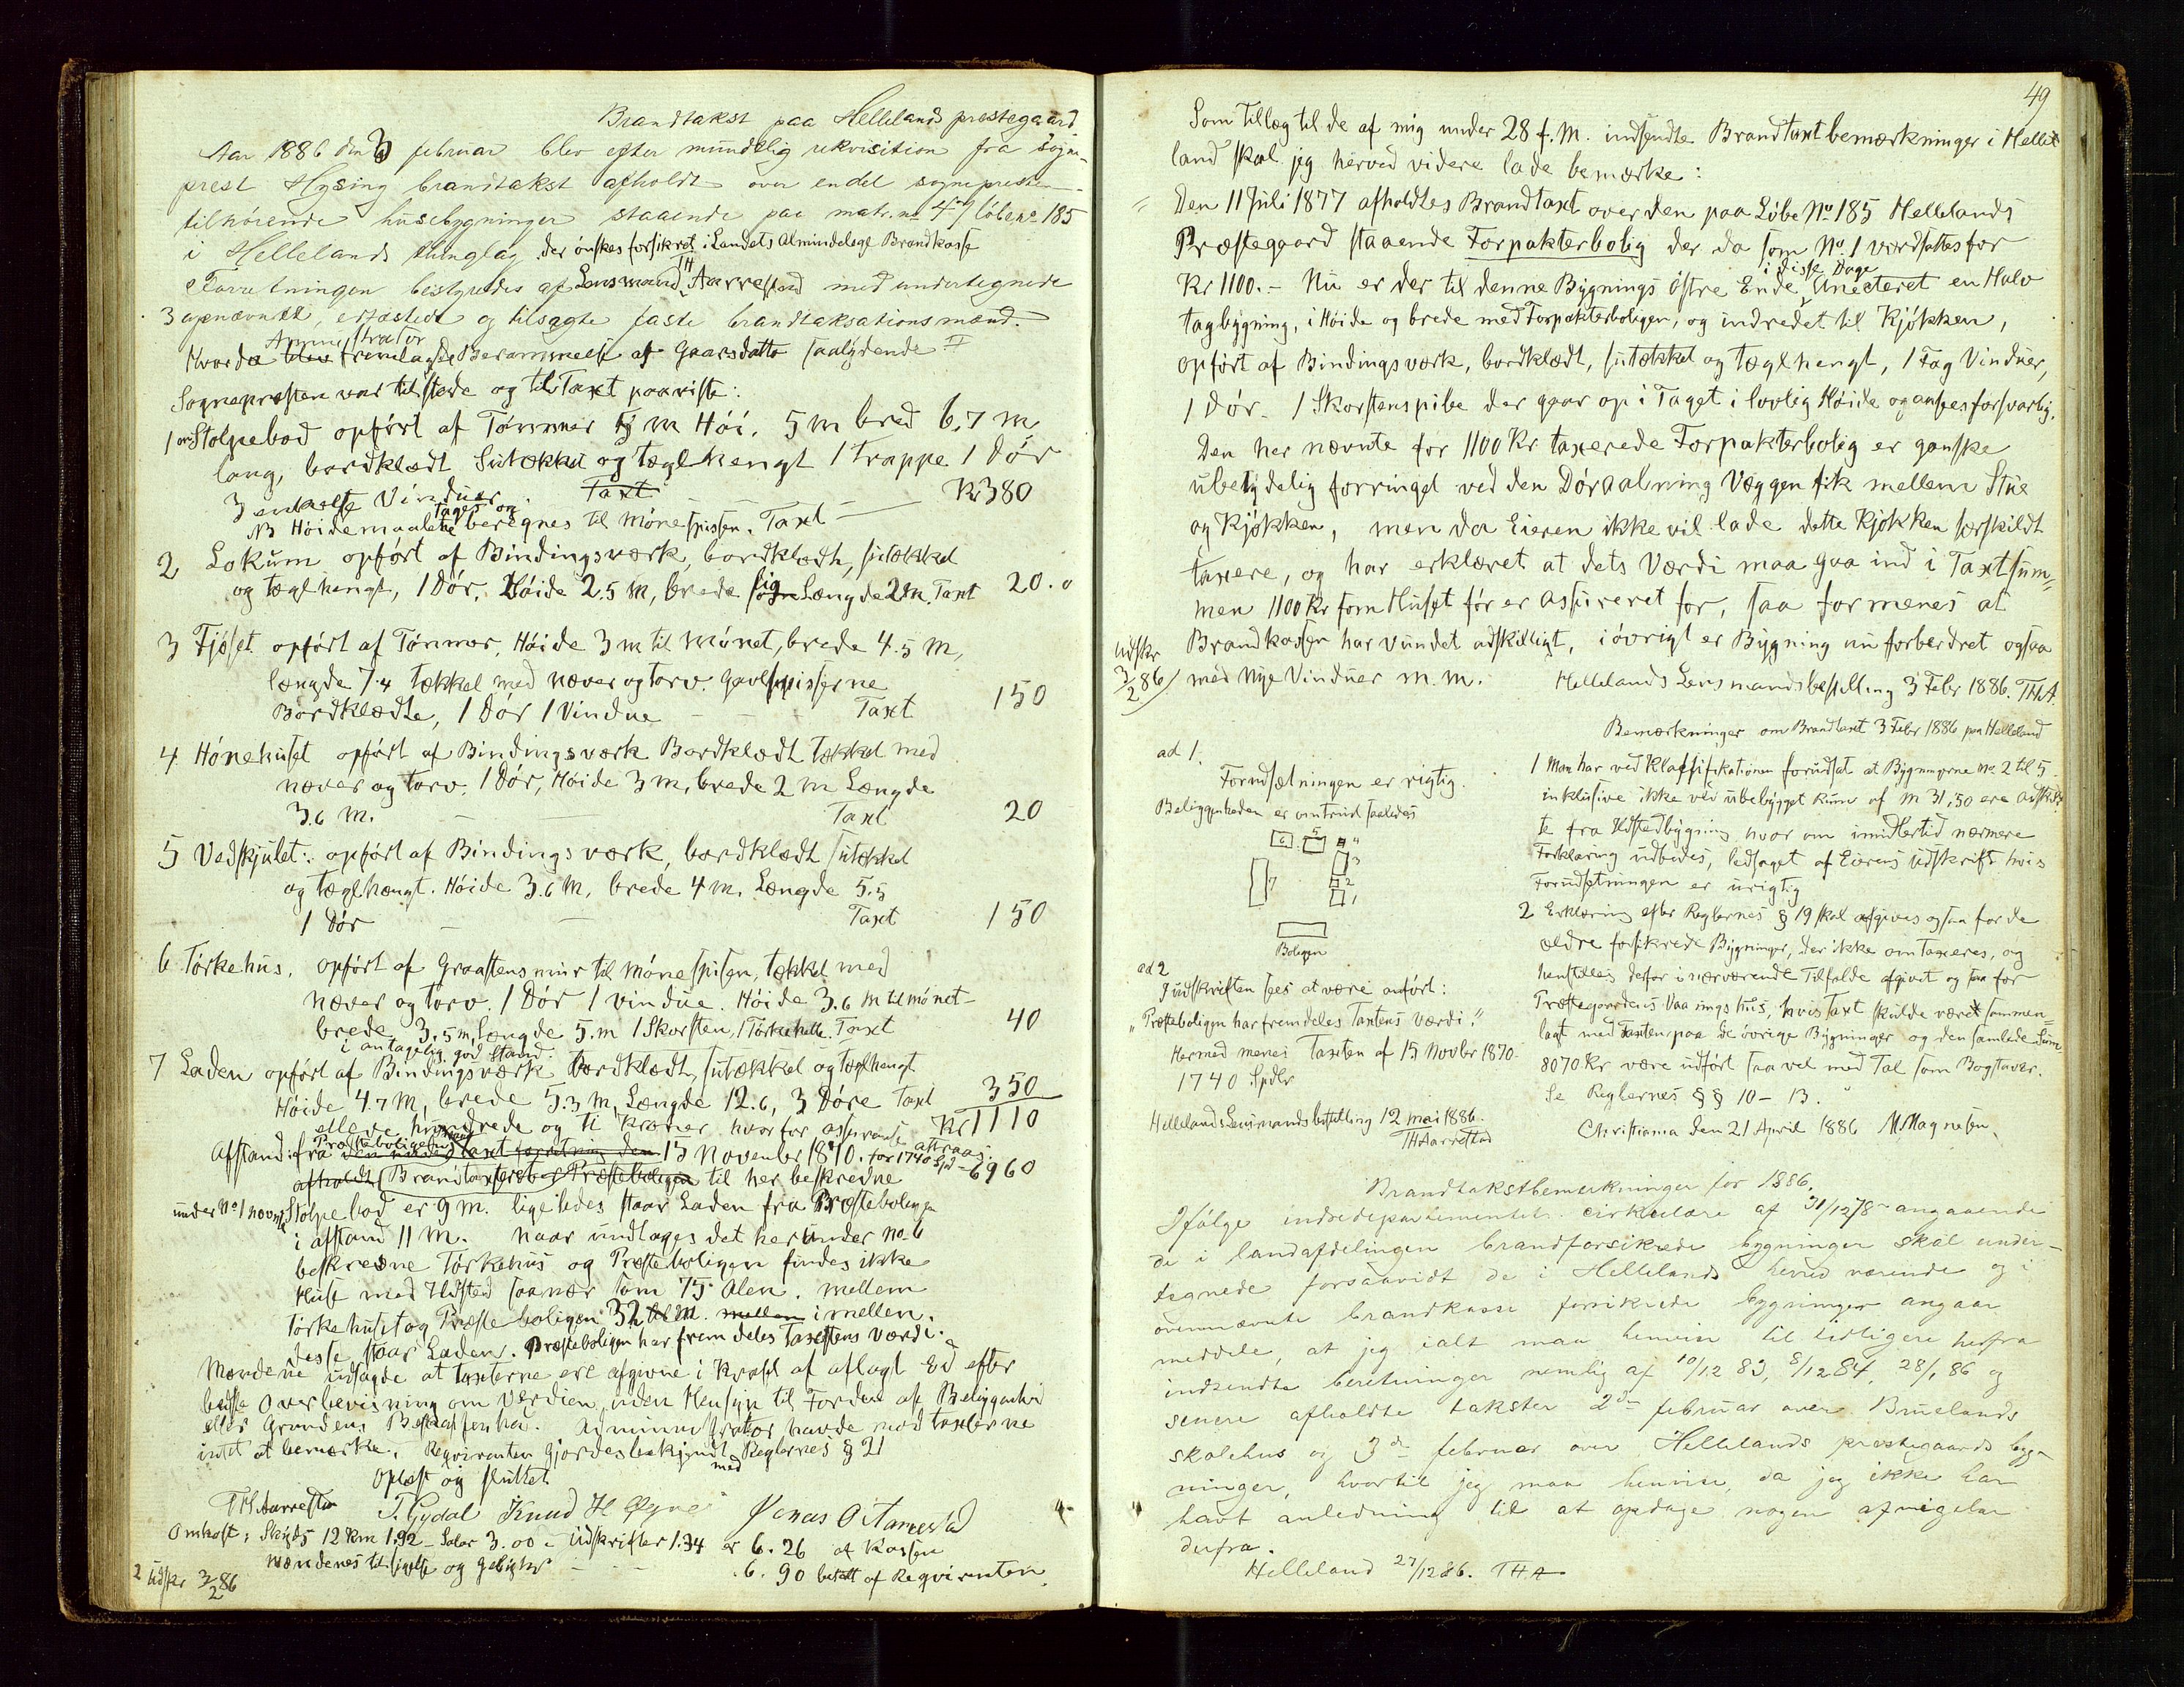 Brandtakst paa Hellelands prestegaard
Aar 1886 den 3 februar blev efter mundtlig rekvisition fra sogne-
prest Hysing brandtakst afholdt over endel sognepresten
tilhørende husebygninger staaende paa matr. no 47 løbeno 185
i Hellelands thinglag der ønskes forsikret i Landets Almindelige Brandkasse
Forretningen bestyredes af Lensmand TH Aarrestad med undertegnede
3 opnævnte, edfæstede og tilsagte faste brandtaksationsmænd.
Hvorda Aministrator fremlagde Berammelse af Gaarsdatto saalydende
Sognepresten var tilstede og til Taxt paaviste:
1 Stolpebod opført af Tømmer 5 m Høi, 5 m bred 6,7 m
lang, bordklædt Sutækket og tæglhengt 1 Trappe 1 Dør
3 enkelte Vinduer Taxt Kr 380
NB Høidemaalene tages og beregnes til Mønespissen. Taxt
2 Lokum opført af Bindingsværk, bordklædt, sutækkel
og tæglhengt, 1 Dør, Høide 2.5 m, brede lig Længde 2 m. Taxt 20.0
3 Fjøset opført af Tømmer, Høide 3 m til Mønet, brede 4.5 m,
længde 7.4 tækkel med næver og torv. Gavlspisserne
Bordklædte, 1 Dør 1 Vindue Taxt 150
4 Hønehuset opført af Bindingsværk Bordklædt Tækkel med
næver og torv. 1 Dør, Høide 3 m, brede 2 m Længde
3.6 m. Taxt 20
5 Vedskjulet: opført af Bindingsværk, bordklædt sutækkel
og tæglhængt. Høide 3.6 m, brede 4 m. Længde 5.5
1 Dør Taxt 150
6 Tørkehus, opført af Graastensmur til Mønespisen, tækkel med
næver og torv. 1 Dør 1 vindue. Høide 3.6 m til mønet
brede 3.5 m, Længde 5. m 1 Skorsten, 1 Tørkehelle. Taxt 40
i antagelig god Stand.
7 Laden opført af Bindingsværk bordklædt, sutækkel og tæglhengt
Høide 4.7 m, brede 5.3 m, Længde 12.6, 3 Døre Taxt 350
elleve hundrede og ti Kroner hvorfor assurance attraaes. Kr 1110
Afstand: fra Præsteboligens den under Taxt forretning den 15 November 1870. for 1740 Spd = 6960
afholdt Brandtaxerede Præsteboligen til her beskrevne
under No 1 nævnte Stolpebod er 9 m. ligeledes staar Laden fra Præsteboligen
i afstand 11 m. Naar undtages det herunder no 6
beskrevne Tørkehus og Præsteboligen findes ikke
Huse med Ildsted saa nær som 75 Alen. mellem
Tørkehuset og Præsteboligen 32 m. mellem imellen.
desse staar Laden. Præsteboligen har fremdeles Taxstens værdi.
Mændene udsagde at taxterne ere afgivne i Kraft af aflagt Ed efter
bedste Overbevisning om Værdien uden Hensyn til Fordele af Beliggenhed
eller Grundens Beskaffenhed. Administrator havde mod taxterne
intet at bemærke. Reqvirenten gjordes bekjendt med Reglernes § 21
Oplæst og sluttet
TH Aarrestad T. Gydal Knud H Øgne Jonas O Aarrestad
Omkost: Skyds 12 Km 1.92 - Salær 3.00 - Udskrifter 1.34 er 6.26 af Kassen
Mændenes tilsigelse og Gebyhr 6.90 betalt af Reqvirenten
2 udskr 3/2 86
49
Som Tillæg til de af mig under 28 f. M. indsendte Brandtaxtbemærkninger i Helle
land skal jeg herved videre lade bemærke:
Den 11 Juli 1877 afholdtes Brandtaxt over den paa Løbe No 185 Hellelands
Præstegaard staaende Forpakterbolig der da som No. 1 værdsattes for
Kr 1100. - Nu er der til denne Bygnings østre Ende i disse Dage Anecteret en Halv
tagbygning, i Høide og brede med Forpakterboligen, og indredet til Kjøkken,
opført af Bindingsværk, bordklædt, sutækkel og tæglhengt, 1 Fag Vinduer,
1 Dør. 1 Skorstenspibe der gaar op i Taget i lovlig Høide og ansees forsvarlig.
Den her nævnte for 1100 Kr taxerede Forpakterbolig er ganske
ubetydelig forringet ved den Døraabning Væggen fik mellem Stue
og Kjøkken, men da Eieren ikke vil lade dette Kjøkken særskildt
taxere, og har erklæret at dets Værdi maa gaa ind i Taxtsum-
men 1100 Kr som Huset før er assureret for, saa formenes at
Brandkassen har vundet adskilligt, iøvrigt er Bygning nu forbedret ogsaa
med nye Vinduer m. m. Hellelands Lensmandsbestilling 3 Febr 1886. THA.
Udskr
3/2 86
ad 1.
Forudsætningen er rigtig.
Beliggenheden er omtrent saaledes
6 5 4
3
7 2
1
Boligen
ad 2
I udskriften sees at være anført:
"Præsteboligen har fremdeles Taxtens værdi."
Hermed menes Taxten af 15 Novbr 1870.
1740 Spdlr
Hellelands Lensmandsbestilling 12 mai 1886.
TH Aarrestad
Bemærkninger om Brandtaxt 3 Febr 1886 paa Helleland
1 Man har ved Klassifikationen forudsat at Bygningerne no. 2 til 5
inklusive ikke ved ubebygget Rum af M 31,50 ere adskil
te fra Ildstedbygning hvor om imidlertid nærmere
Forklaring udbedes, ledsaget af Eierens Udskrift hvis
Forudsetningen er urigtig
2 Erklæring efter Reglernes § 19 skal afgives ogsaa for de
ældre forsikrede Bygninger, der ikke omtaxeres, og
henstilles derfor i nærværende Tilfælde afgivet og saa for
Præstegaardens Vaaningshus, hvis Taxt skulde været sammen
lagt med Taxten paa de øvrige Bygninger og den samlede Sum
8070 Kr være udført saavel med Tal som Bogstaver.
Se Reglernes §§ 10 - 13.
Christiania den 21 April 1886 M. Magnesen.
Brandtakstbemerkninger for 1886.
Ifølge indredepartementets cirkulære af 31/12 78 angaaende
de i landafdelingen brandforsikrede bygninger skal under-
tegnede forsaavidt de i Hellelands herred værende og i
ovennævnte brandkasse forsikrede bygninger angaar
meddele, at jeg ialt maa henvise til tidligere herfra
indsendte beretninger nemlig af 10/12 83, 8/12 84, 28/1 86 og
senere afholdte takster 2den februar over Bruelands
skolehus og 3de februar over Hellelands præstegaards byg-
ninger, hvortil jeg maa henvise, da jeg ikke har
havt anledning til at opdage nogen afvigelse
derfra.
Helleland 27/12 86. THA